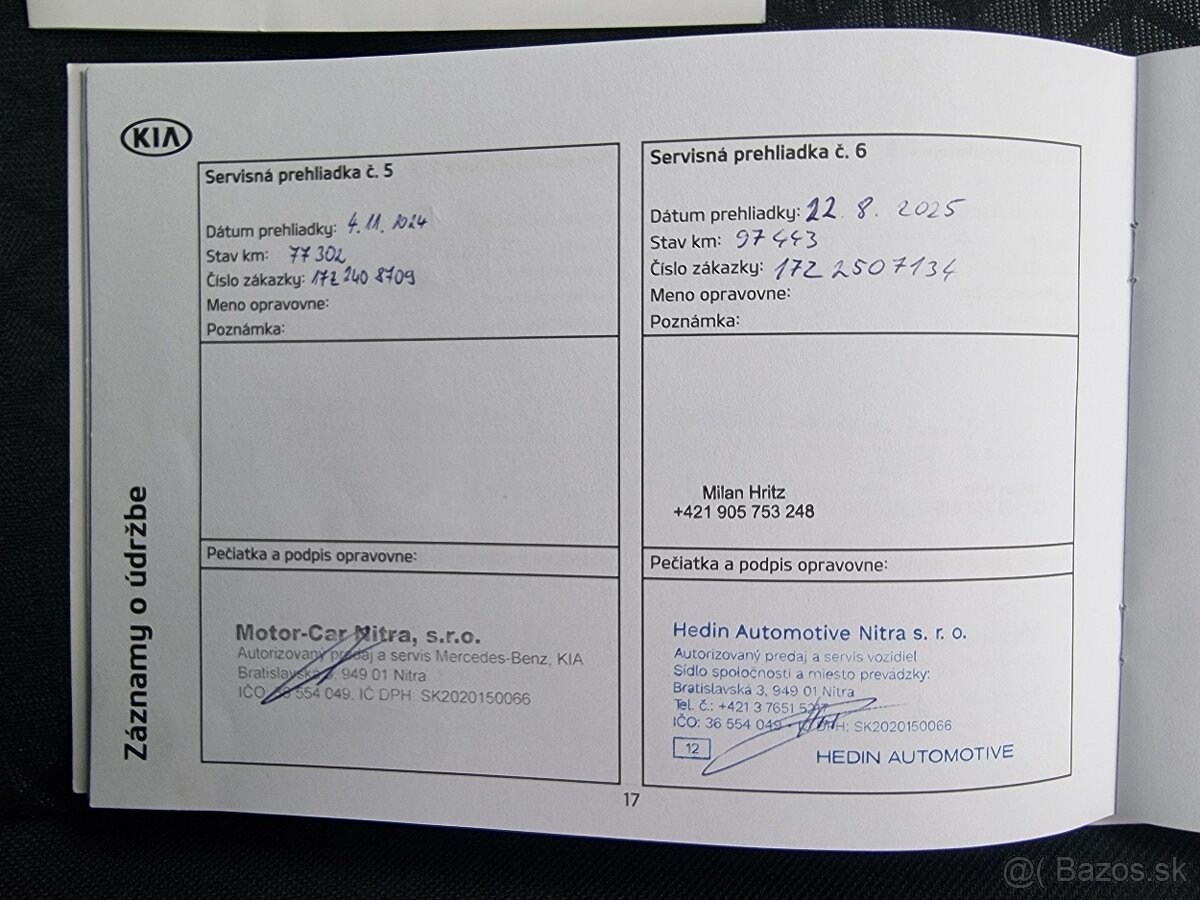 KIA
Záznamy o údržbe
Servisná prehliadka č. 5
Dátum prehliadky: 4.11.2024
Stav km: 77 302
Číslo zákazky: 172 240 8709
Meno opravovne:
Poznámka:
Pečiatka a podpis opravovne:
Motor-Car Nitra, s.r.o.
Autorizovaný predaj a servis Mercedes-Benz, KIA
Bratislavská 3, 949 01 Nitra
IČO: 36 554 049, IČ DPH: SK2020150066
Servisná prehliadka č. 6
Dátum prehliadky: 22. 8. 2025
Stav km: 97 443
Číslo zákazky: 172 2507134
Meno opravovne:
Poznámka:
Milan Hritz
+421 905 753 248
Pečiatka a podpis opravovne:
Hedin Automotive Nitra s. r. o.
Autorizovaný predaj a servis vozidiel
Sídlo spoločnosti a miesto prevádzky:
Bratislavská 3, 949 01 Nitra
Tel. č.: +421 3 7651
IČO: 36 554 049 DPH: SK2020150066
12
HEDIN AUTOMOTIVE
17
@( Bazos.sk